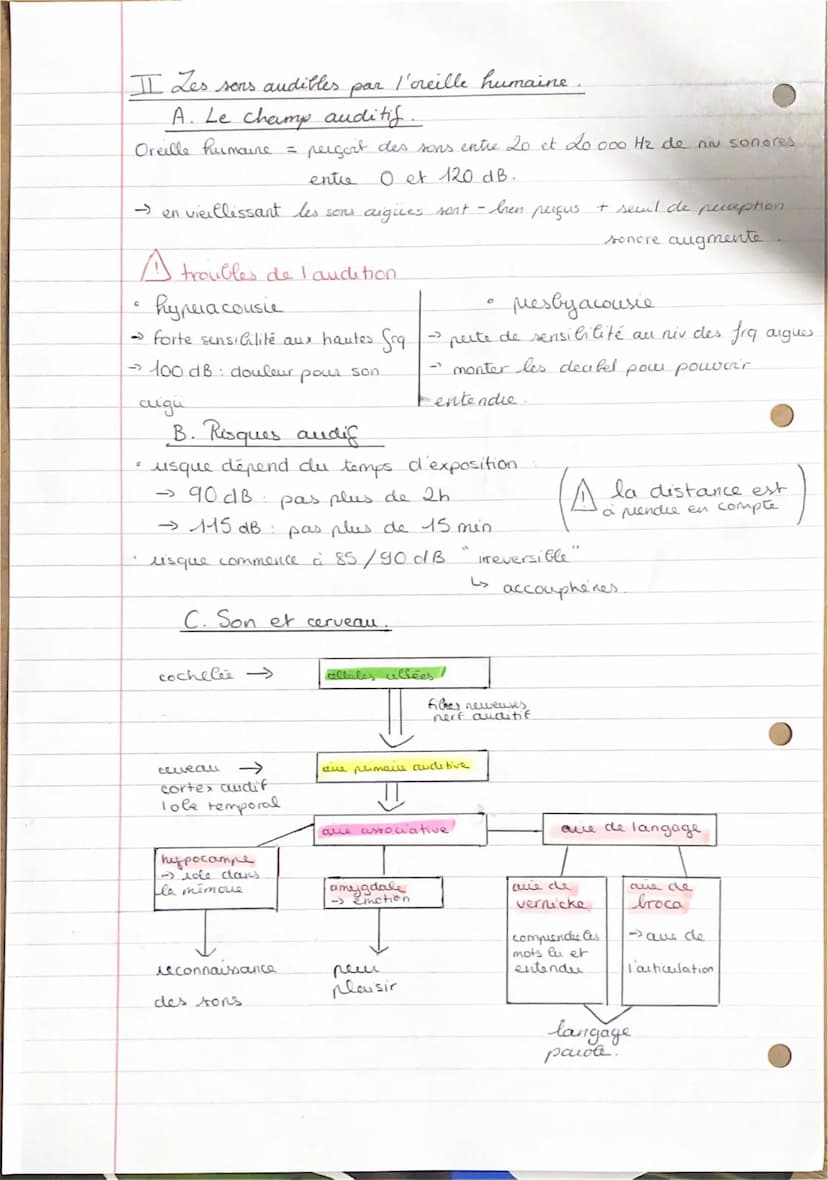 II Les sons audibles par l'oreille humaine.
A. Le champ auditif.
Oreille humaine = perçoit des sons entre 20 et 20 000 Hz de niv sonores
entre 0 et 120 dB.
→ en vieillissant les sons aigües sont - bien perçus + seuil de perception
sonore augmente.
⚠ troubles de l'audition
• hyperacousie
→ Forte sensibilité aux hautes frq
→ 100 dB : douleur pour son
aigü
• presbyacousie
→ perte de sensibilité au niv des frq aigues
→ monter les decibel pour pouvoir
entendre.
B. Risques audif
• risque dépend du temps d'exposition :
→ 90 dB : pas plus de 2h
→ 115 dB : pas plus de 15 min
(⚠ la distance est
à prendre en compte)
• risque commence à 85/90 dB "irreversible"
↳ accouphènes.
C. Son et cerveau.
cochelée → cellules ciliées
fibres nerveuses
nerf auditif
cerveau → aire primaire auditive
cortex audif
lobe temporal
aire associative
aire de langage
hypocampe
→ role dans
la mémoire
amygdale
→ émotion
aire de
vernicke
comprendre les
mots lu et
entendu
aire de
broca
→ aire de
l'articulation
reconnaissance
des sons
peur
plaisir
langage
parole.